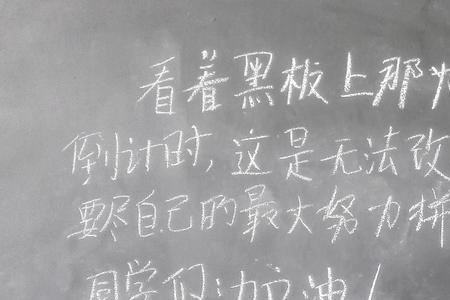 看着黑板上那
倒计时,这是无法改
要尽自己的最大努力拼
同学们:加油!